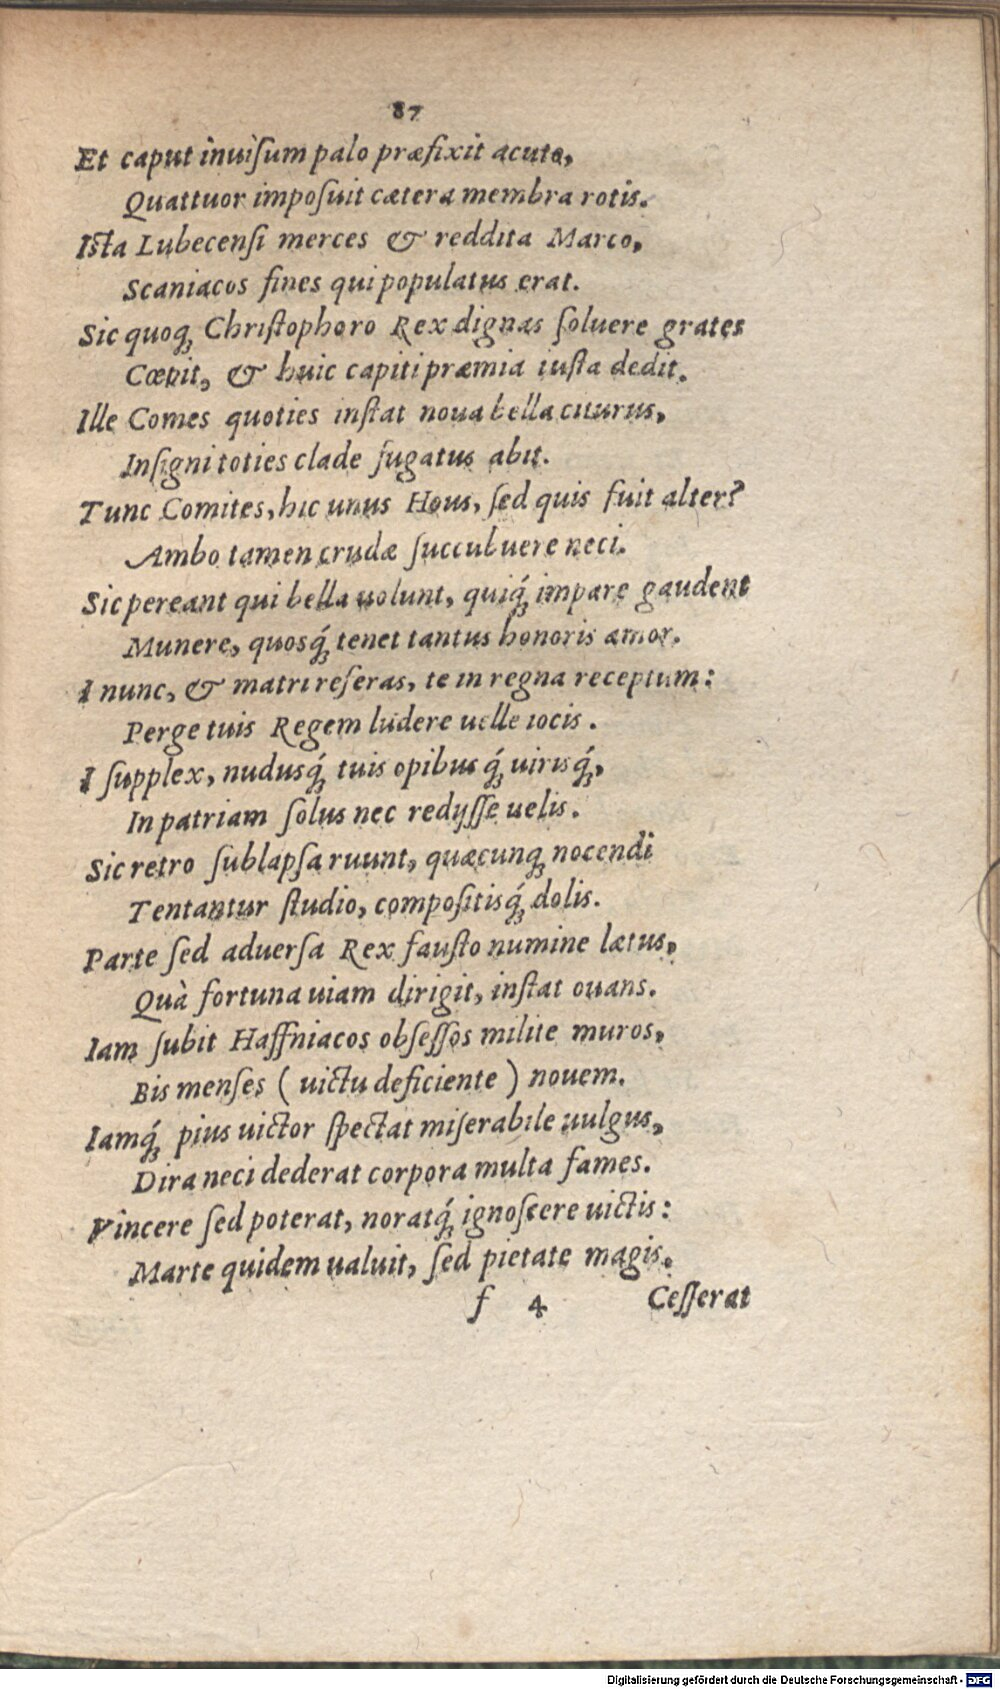 87
Et caput inuisum palo præfixit acuto,
Quattuor imposuit cætera membra rotis.
Ista Lubecensi merces & reddita Marco,
Scaniacos fines qui populatus erat.
Sic quoq; Christophoro Rex dignas soluere grates
Cœpit, & huic capiti præmia iusta dedit.
Ille Comes quoties instat noua bella citurus,
Insigni toties clade fugatus abit.
Tunc Comites, hic unus Hous, sed quis fuit alter?
Ambo tamen crudæ succubuere neci.
Sic pereant qui bella uolunt, quiq́; impare gaudent
Munere, quosq́; tenet tantus honoris amor.
I nunc, & matri referas, te in regna receptum:
Perge tuis Regem ludere uelle iocis.
I supplex, nudusq́; tuis opibusq́; uirisq́;,
In patriam solus nec redijsse uelis.
Sic retro sublapsa ruunt, quæcunq; nocendi
Tentantur studio, compositisq́; dolis.
Parte sed aduersa Rex fausto numine lætus,
Quà fortuna uiam dirigit, instat ouans.
Iam subit Haffniacos obsessos milite muros,
Bis menses ( uictu deficiente ) nouem.
Iamq́; pius uictor spectat miserabile uulgus,
Dira neci dederat corpora multa fames.
Vincere sed poterat, noratq́; ignoscere uictis:
Marte quidem ualuit, sed pietate magis.
f 4 Cesserat
Digitalisierung gefördert durch die Deutsche Forschungsgemeinschaft - DFG